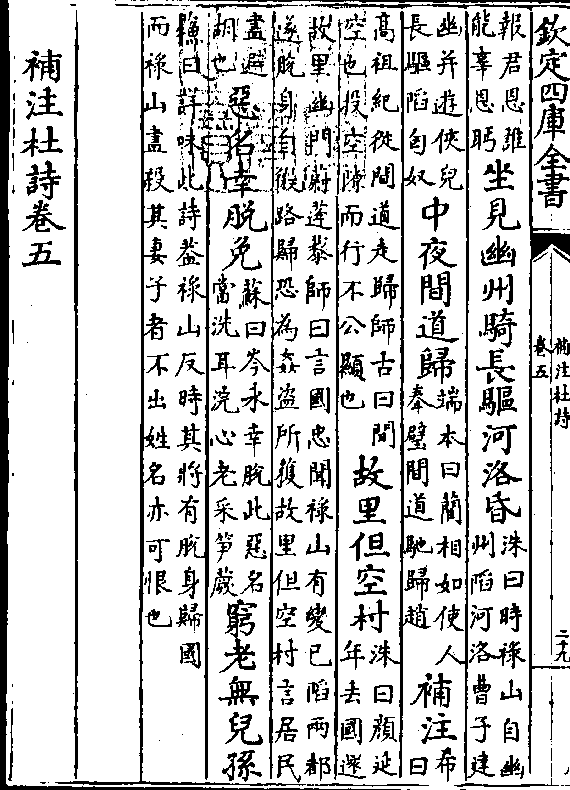 欽定四庫全書
補注杜詩
卷五
二十九
報君恩誰
能辜恩眄
坐見幽州騎長驅河洛昏
洙曰時祿山自幽
州陷河洛曹子建
幽并遊俠兒
長驅陷匈奴
中夜間道歸
端本曰藺相如使人
奉璧間道馳歸趙
補注
希曰
高祖紀從間道走歸師古曰間
空也投空隙而行不公顯也
故里但空村
洙曰顏延
年去國還
故里幽門蔚蓬藜師曰言國忠聞祿山有變已陷兩都
遂脫身自路歸恐為姦盜所獲故里但空村言居民
盡避
胡也
惡名幸脫免
蘇曰岑永幸脫此惡名
當洗耳洗心老采笋蕨
窮老無兒孫
鶴曰詳味此詩葢祿山反時其將有脫身歸國
而祿山盡殺其妻子者不出姓名亦可恨也
補注杜詩卷五